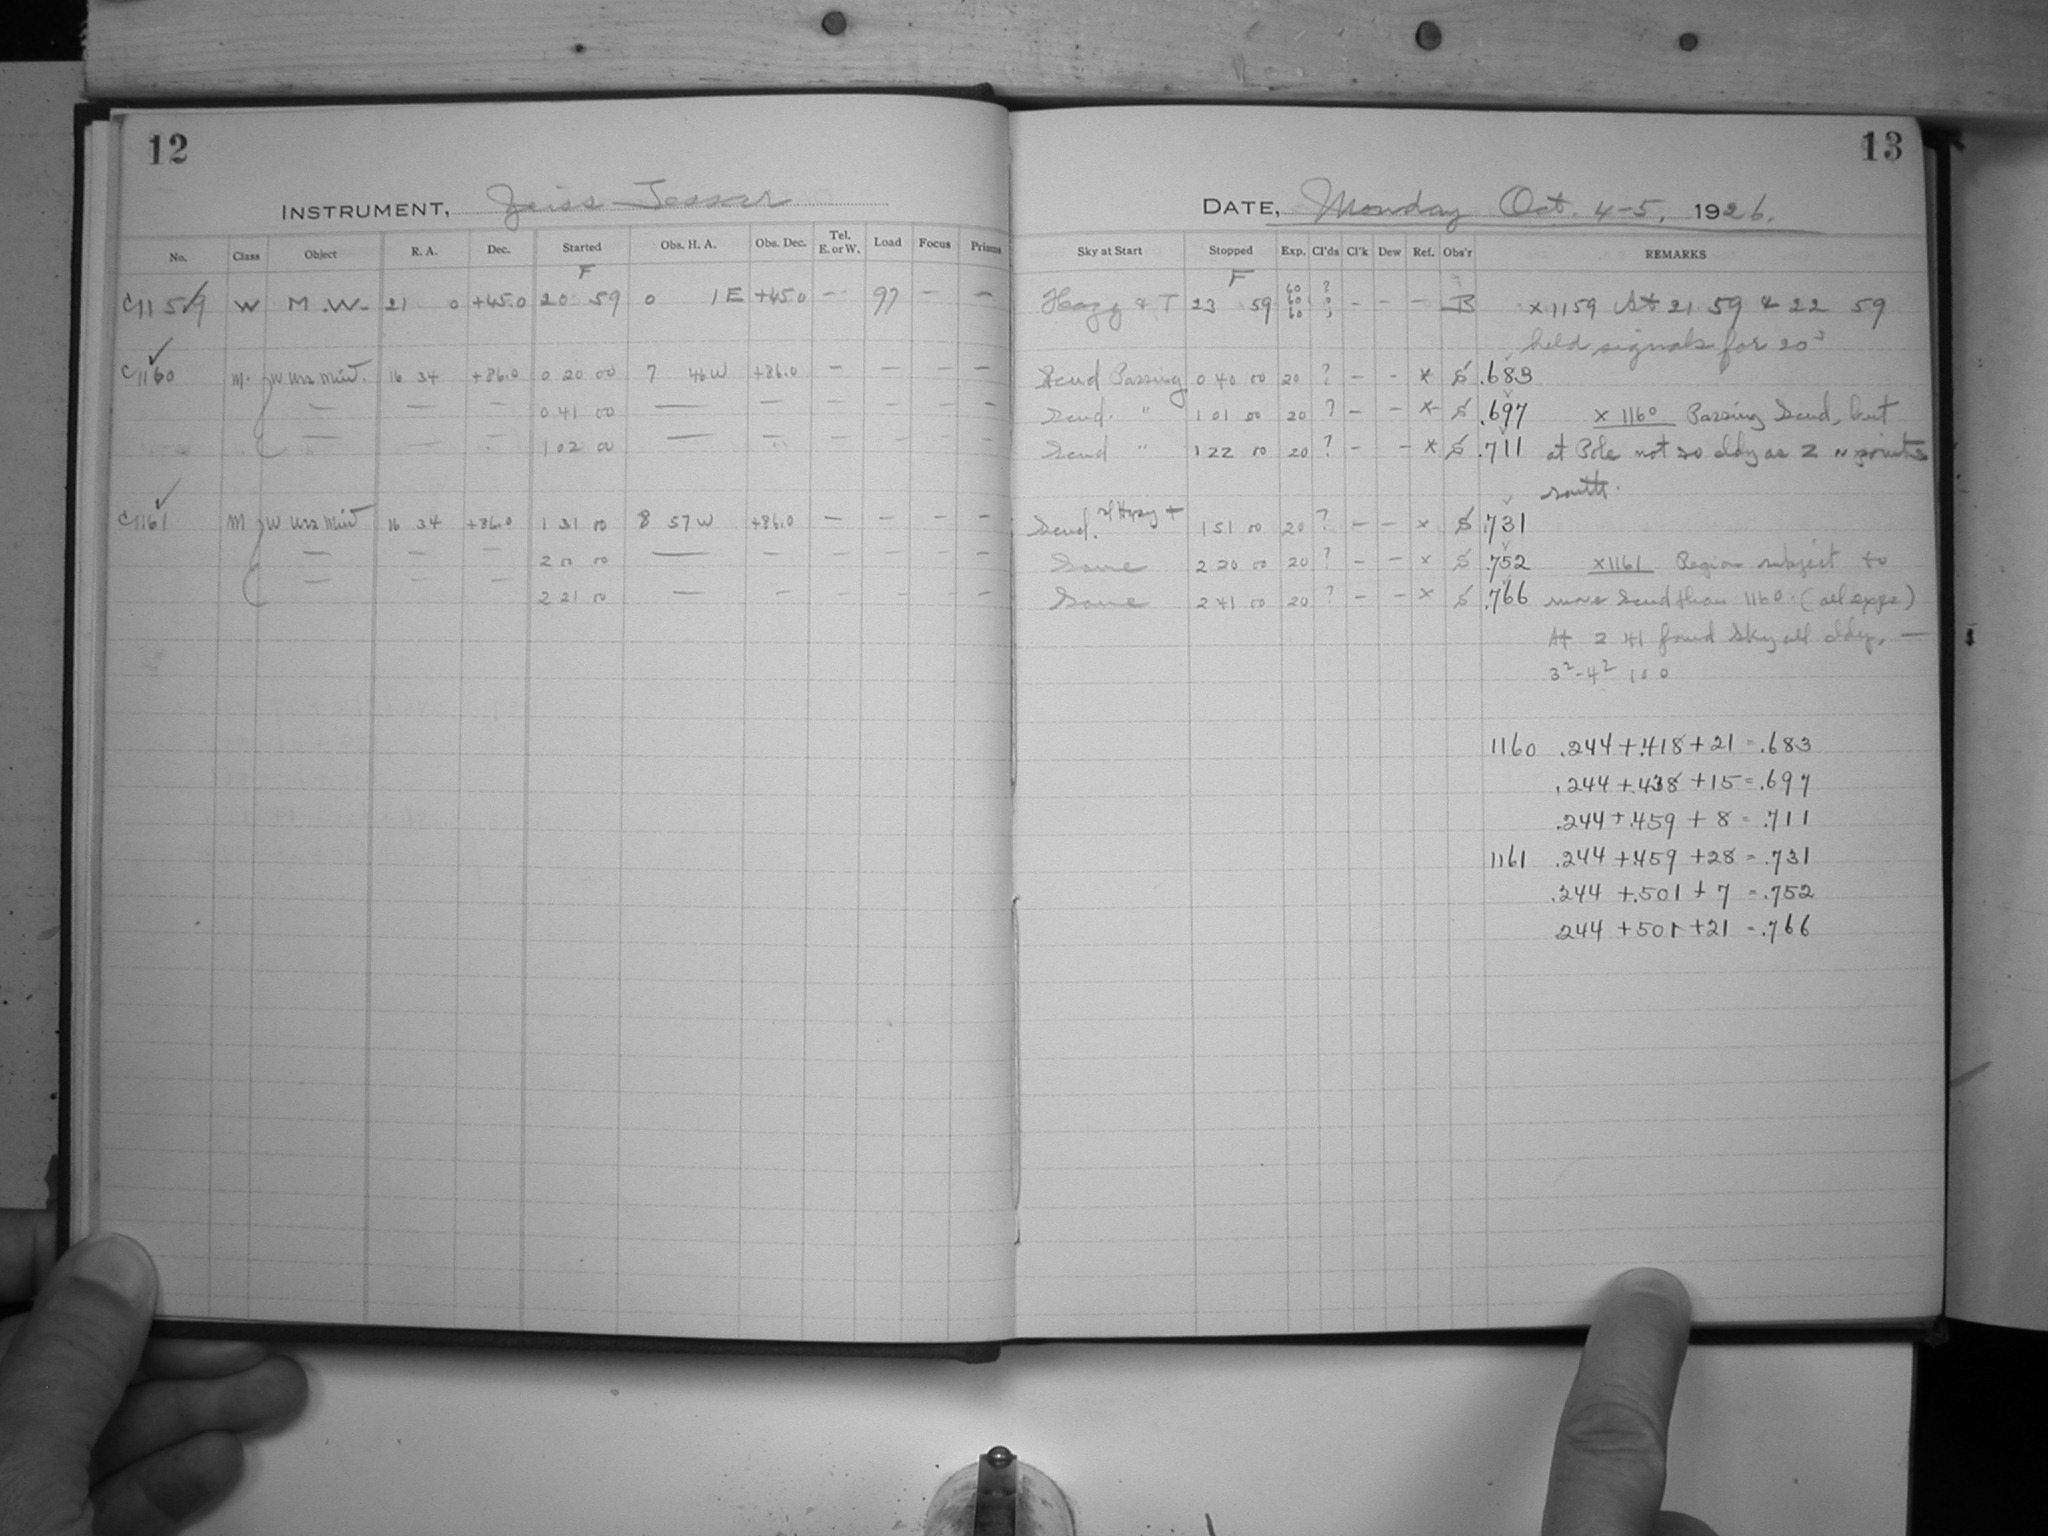 12
INSTRUMENT, Zeiss-Tessar
No. Class Object R. A. Dec. Started Obs. H. A. Obs. Dec. Tel. E. or W. Load Focus Prisms
F
C1159 W M.W. 21 0 +45.0 20 59 0 1 E +45.0 — 97 — —
C1160 ✓ M. W Urs Min. 16 34 +86.0 0 20 00 7 46 W +86.0 — — — —
— — — 0 41 00 — — — — — —
— — — 1 02 00 — — — — — —
C1161 ✓ M W Urs Min 16 34 +86.0 1 31 00 8 57 W +86.0 — — — —
— — — 2 00 00 — — — — — —
— — — 2 21 00 — — — — — —
13
DATE, Monday Oct. 4-5, 1926.
Sky at Start Stopped Exp. Cl'ds Cl'k Dew Ref. Obs'r REMARKS
F
Hazy & T 23 59 60 60 60 ? — — — B x1159 At 21 59 & 22 59
held signals for 20s
Scud Passing 0 40 00 20 ? — — * S .683
Scud. " 1 01 00 20 ? — — * S .697 x 1160 Passing Scud, but
Scud " 1 22 00 20 ? — — * S .711 at Pole not so cldy as Z points
south.
Scud. Hazy + 1 51 00 20 ? — — x S .731
Same 2 20 00 20 ? — — x S .752 x1161 Region subject to
Same 2 41 00 20 ? — — x S .766 more Scud than 1160. (all exps)
At 2 41 found Sky all cldy. —
1160 .244 + .418 + 21 = .683
.244 + .438 + 15 = .697
.244 + .459 + 8 = .711
1161 .244 + .459 + 28 = .731
.244 + .501 + 7 = .752
.244 + 501 + 21 = .766